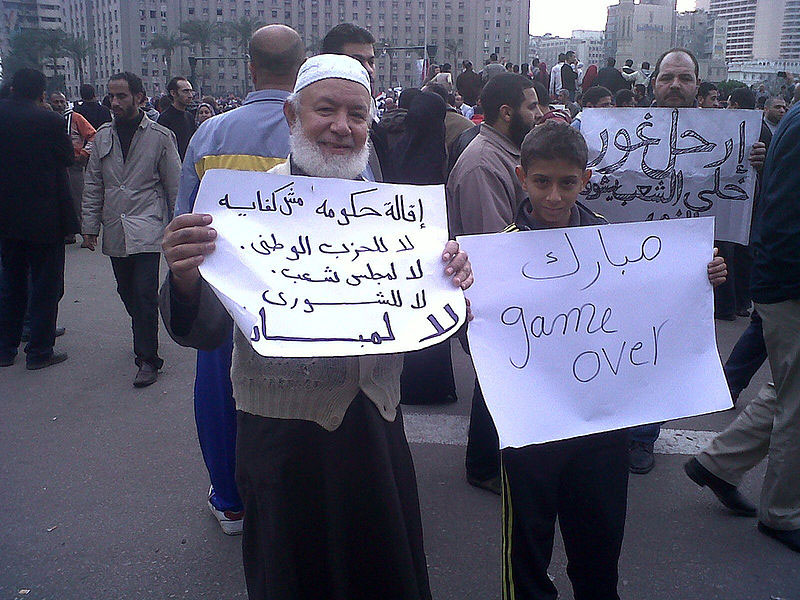 إقالة حكومه مش كفايه
لا للحزب الوطنى.
لا لمجلس شعب.
لا للشورى
لا لمبار
مبارك
game
over
إرحل غور
خلى الشعب يشوف